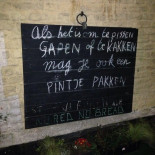 Als het is om te pissen
GAPEN of te KAKKEN
mag je ook een
PINTJE PAKKEN